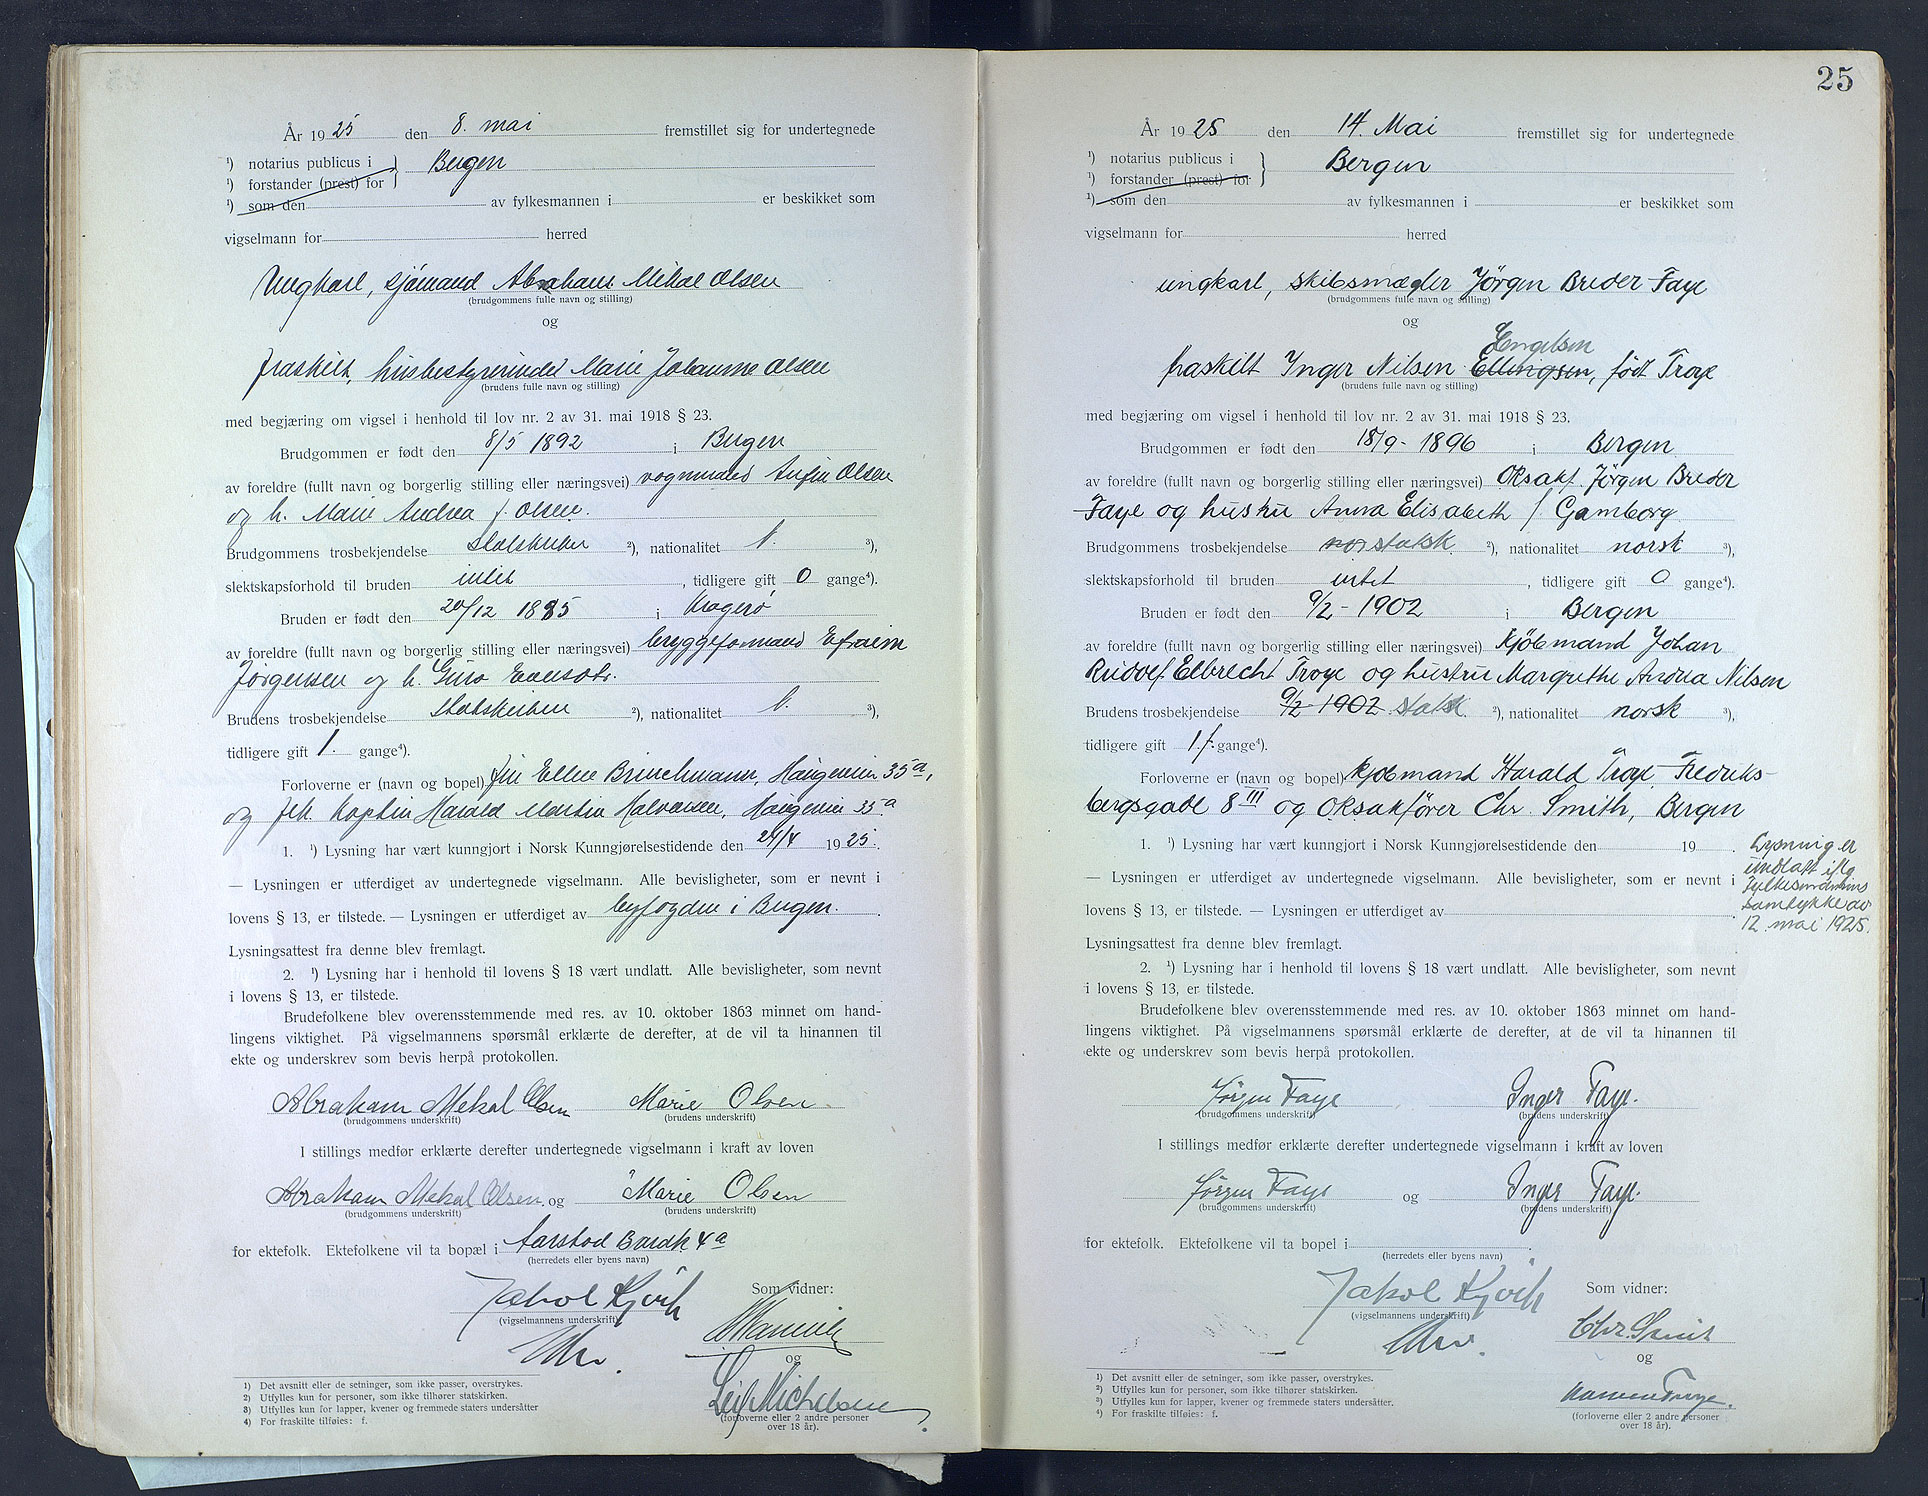 År 1925 den 8. mai fremstillet sig for undertegnede
¹) notarius publicus i } Bergen
¹) forstander (prest) for
¹) som den av fylkesmannen i er beskikket som
vigselmann for herred
Ungkarl, sjömand Abraham Mikal Olsen
(brudgommens fulle navn og stilling)
og
fraskilt, husbestyrerinde Marie Johanne Olsen
(brudens fulle navn og stilling)
med begjæring om vigsel i henhold til lov nr. 2 av 31. mai 1918 § 23.
Brudgommen er født den 8/5 1892 i Bergen
av foreldre (fullt navn og borgerlig stilling eller næringsvei) vognmand Anfin Olsen
og h. Marie Andrea f. Olsen.
Brudgommens trosbekjendelse statskirken ²), nationalitet N. ³),
slektskapsforhold til bruden intet , tidligere gift 0 gange⁴).
Bruden er født den 20/12 1885 i Kragerø
av foreldre (fullt navn og borgerlig stilling eller næringsvei) bryggeformand Efraim
Jørgensen og h. Gina Evensdtr.
Brudens trosbekjendelse statskirken ²), nationalitet N. ³),
tidligere gift 1. gange⁴).
Forloverne er (navn og bopel) frk Ellen Brinchmann, Haugeveien 35a,
og fhv. kaptein Harald Martin Halvorsen, Haugeveien 35a
1. ¹) Lysning har vært kunngjort i Norsk Kunngjørelsestidende den 24/4 1925.
— Lysningen er utferdiget av undertegnede vigselmann. Alle bevisligheter, som er nevnt i
lovens § 13, er tilstede. — Lysningen er utferdiget av byfogden i Bergen.
Lysningsattest fra denne blev fremlagt.
2. ¹) Lysning har i henhold til lovens § 18 vært undlatt. Alle bevisligheter, som nevnt
i lovens § 13, er tilstede.
Brudefolkene blev overensstemmende med res. av 10. oktober 1863 minnet om hand-
lingens viktighet. På vigselmannens spørsmål erklærte de derefter, at de vil ta hinannen til
ekte og underskrev som bevis herpå protokollen.
Abraham Mekal Olsen Marie Olsen
(brudgommens underskrift) (brudens underskrift)
I stillings medfør erklærte derefter undertegnede vigselmann i kraft av loven
Abraham Mekal Olsen og Marie Olsen
(brudgommens underskrift) (brudens underskrift)
for ektefolk. Ektefolkene vil ta bopæl i Aarstad Barak 4a
(herredets eller byens navn)
Som vidner:
Jakob Kjørh
(vigselmannens underskrift)
og
Leif Michelsen
(forloverne eller 2 andre personer
over 18 år).
1) Det avsnitt eller de setninger, som ikke passer, overstrykes.
2) Utfylles kun for personer, som ikke tilhører statskirken.
3) Utfylles kun for lapper, kvener og fremmede staters undersåtter
4) For fraskilte tilføies: f.
25
År 1925 den 14. Mai fremstillet sig for undertegnede
¹) notarius publicus i } Bergen
¹) forstander (prest) for
¹) som den av fylkesmannen i er beskikket som
vigselmann for herred
ungkarl, skibsmægler Jörgen Breder Faye
(brudgommens fulle navn og stilling)
og
Engelsen
fraskilt Inger Nilsen Ellingsen, födt Troye
(brudens fulle navn og stilling)
med begjæring om vigsel i henhold til lov nr. 2 av 31. mai 1918 § 23.
Brudgommen er født den 18/9 - 1896 i Bergen
av foreldre (fullt navn og borgerlig stilling eller næringsvei) Oksakf. Jörgen Breder
Faye og hustru Anna Elisabeth f. Gamborg
Brudgommens trosbekjendelse nor statsk. ²), nationalitet norsk ³),
slektskapsforhold til bruden intet , tidligere gift 0 gange⁴).
Bruden er født den 9/2 - 1902 i Bergen
av foreldre (fullt navn og borgerlig stilling eller næringsvei) kjöbmand Johan
Rudolf Elbrecht Troye og hustru Margrethe Andrea Nilsen
Brudens trosbekjendelse 9/2 - 1902 statsk. ²), nationalitet norsk ³),
tidligere gift 1 f. gange⁴).
Forloverne er (navn og bopel) kjöbmand Harald Troye, Fredriks-
bergsgade 8 III og Oksakförer Chr. Smith, Bergen
1. ¹) Lysning har vært kunngjort i Norsk Kunngjørelsestidende den 19 .
— Lysningen er utferdiget av undertegnede vigselmann. Alle bevisligheter, som er nevnt i
lovens § 13, er tilstede. — Lysningen er utferdiget av
Lysning er
undlatt iflg.
fylkesmannens
samtykke av
12. mai 1925.
Lysningsattest fra denne blev fremlagt.
2. ¹) Lysning har i henhold til lovens § 18 vært undlatt. Alle bevisligheter, som nevnt
i lovens § 13, er tilstede.
Brudefolkene blev overensstemmende med res. av 10. oktober 1863 minnet om hand-
lingens viktighet. På vigselmannens spørsmål erklærte de derefter, at de vil ta hinannen til
ekte og underskrev som bevis herpå protokollen.
Jörgen Faye Inger Faye.
(brudgommens underskrift) (brudens underskrift)
I stillings medfør erklærte derefter undertegnede vigselmann i kraft av loven
Jörgen Faye og Inger Faye.
(brudgommens underskrift) (brudens underskrift)
for ektefolk. Ektefolkene vil ta bopel i
(herredets eller byens navn)
Som vidner:
Jakob Kjørh
(vigselmannens underskrift)
Chr. Smith
og
Troye.
(forloverne eller 2 andre personer
over 18 år).
¹) Det avsnitt eller de setninger, som ikke passer, overstrykes.
²) Utfylles kun for personer, som ikke tilhører statskirken.
³) Utfylles kun for lapper, kvener og fremmede staters undersåtter.
⁴) For fraskilte tilføies: f.